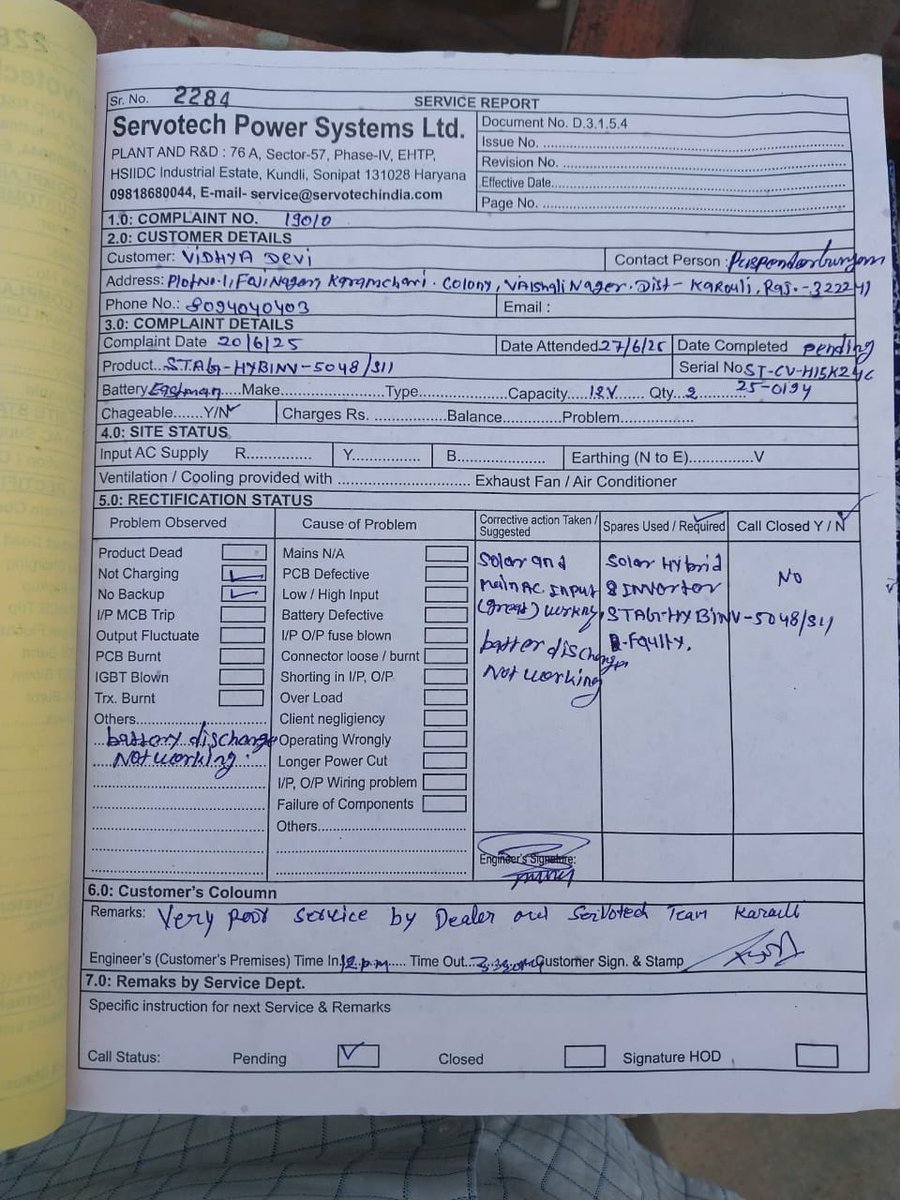 Sr. No. 2284 SERVICE REPORT
Servotech Power Systems Ltd.
PLANT AND R&D : 76 A, Sector-57, Phase-IV, EHTP,
HSIIDC Industrial Estate, Kundli, Sonipat 131028 Haryana
09818680044, E-mail- service@servotechindia.com
Document No. D.3.1.5.4
Issue No.
Revision No.
Effective Date
Page No.
1.0: COMPLAINT NO. 19010
2.0: CUSTOMER DETAILS
Customer: VIDHYA DEVI Contact Person :
Address: Plot No-1, Karamchari. Colony, VAIShali Nager. Dist- KAROULI, Raj.-322241
Phone No.: 8094040403 Email :
3.0: COMPLAINT DETAILS
Complaint Date 20/6/25 Date Attended 27/6/25 Date Completed pending
Product STAG-HYBINV-5048/S11 Serial No ST-CV-H15K24C
25-0194
Battery Eastman Make Type Capacity 12V Qty 2
Chageable Y/N✓ Charges Rs. Balance Problem
4.0: SITE STATUS
Input AC Supply R Y B Earthing (N to E) V
Ventilation / Cooling provided with Exhaust Fan / Air Conditioner
5.0: RECTIFICATION STATUS
Problem Observed
Product Dead
Not Charging ✓
No Backup ✓
I/P MCB Trip
Output Fluctuate
PCB Burnt
IGBT Blown
Trx. Burnt
Others
battery discharge
Not working.
Cause of Problem
Mains N/A
PCB Defective
Low / High Input
Battery Defective
I/P O/P fuse blown
Connector loose / burnt
Shorting in I/P, O/P
Over Load
Client negligiency
Operating Wrongly
Longer Power Cut
I/P, O/P Wiring problem
Failure of Components
Others
Corrective action Taken /
Suggested
Solar and
main AC INPUT
working
batter discharge
Not working
Engineer's Signature:
Spares Used / Required
Solar Hybrid
Invertor
STAG-HYBINV-5048/S11
Faulty.
Call Closed Y / N
NO
6.0: Customer's Coloumn
Remarks: Very poor service by Dealer and Servotech Team Karauli
Engineer's (Customer's Premises) Time In 12 p.m Time Out Customer Sign. & Stamp
7.0: Remaks by Service Dept.
Specific instruction for next Service & Remarks
Call Status: Pending ✓ Closed Signature HOD